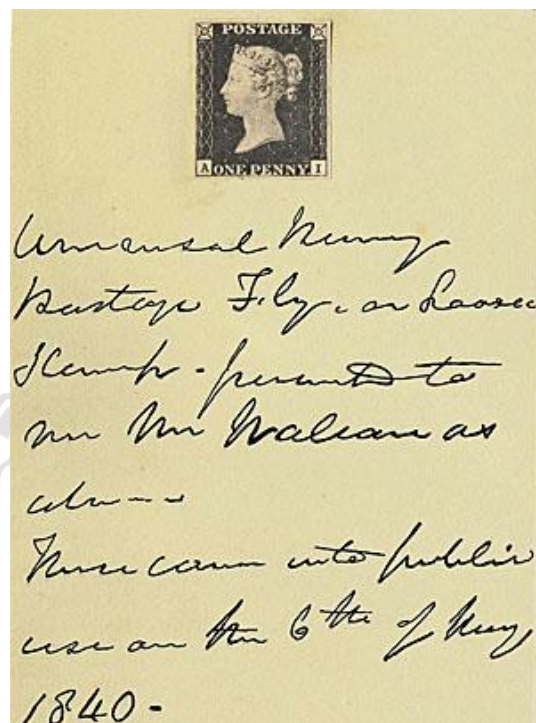 POSTAGE
A ONE PENNY I
Universal Penny
Postage
Stamp - presented to
Mr Wallace as
above
These came into public
use on the 6th of May
1840 -